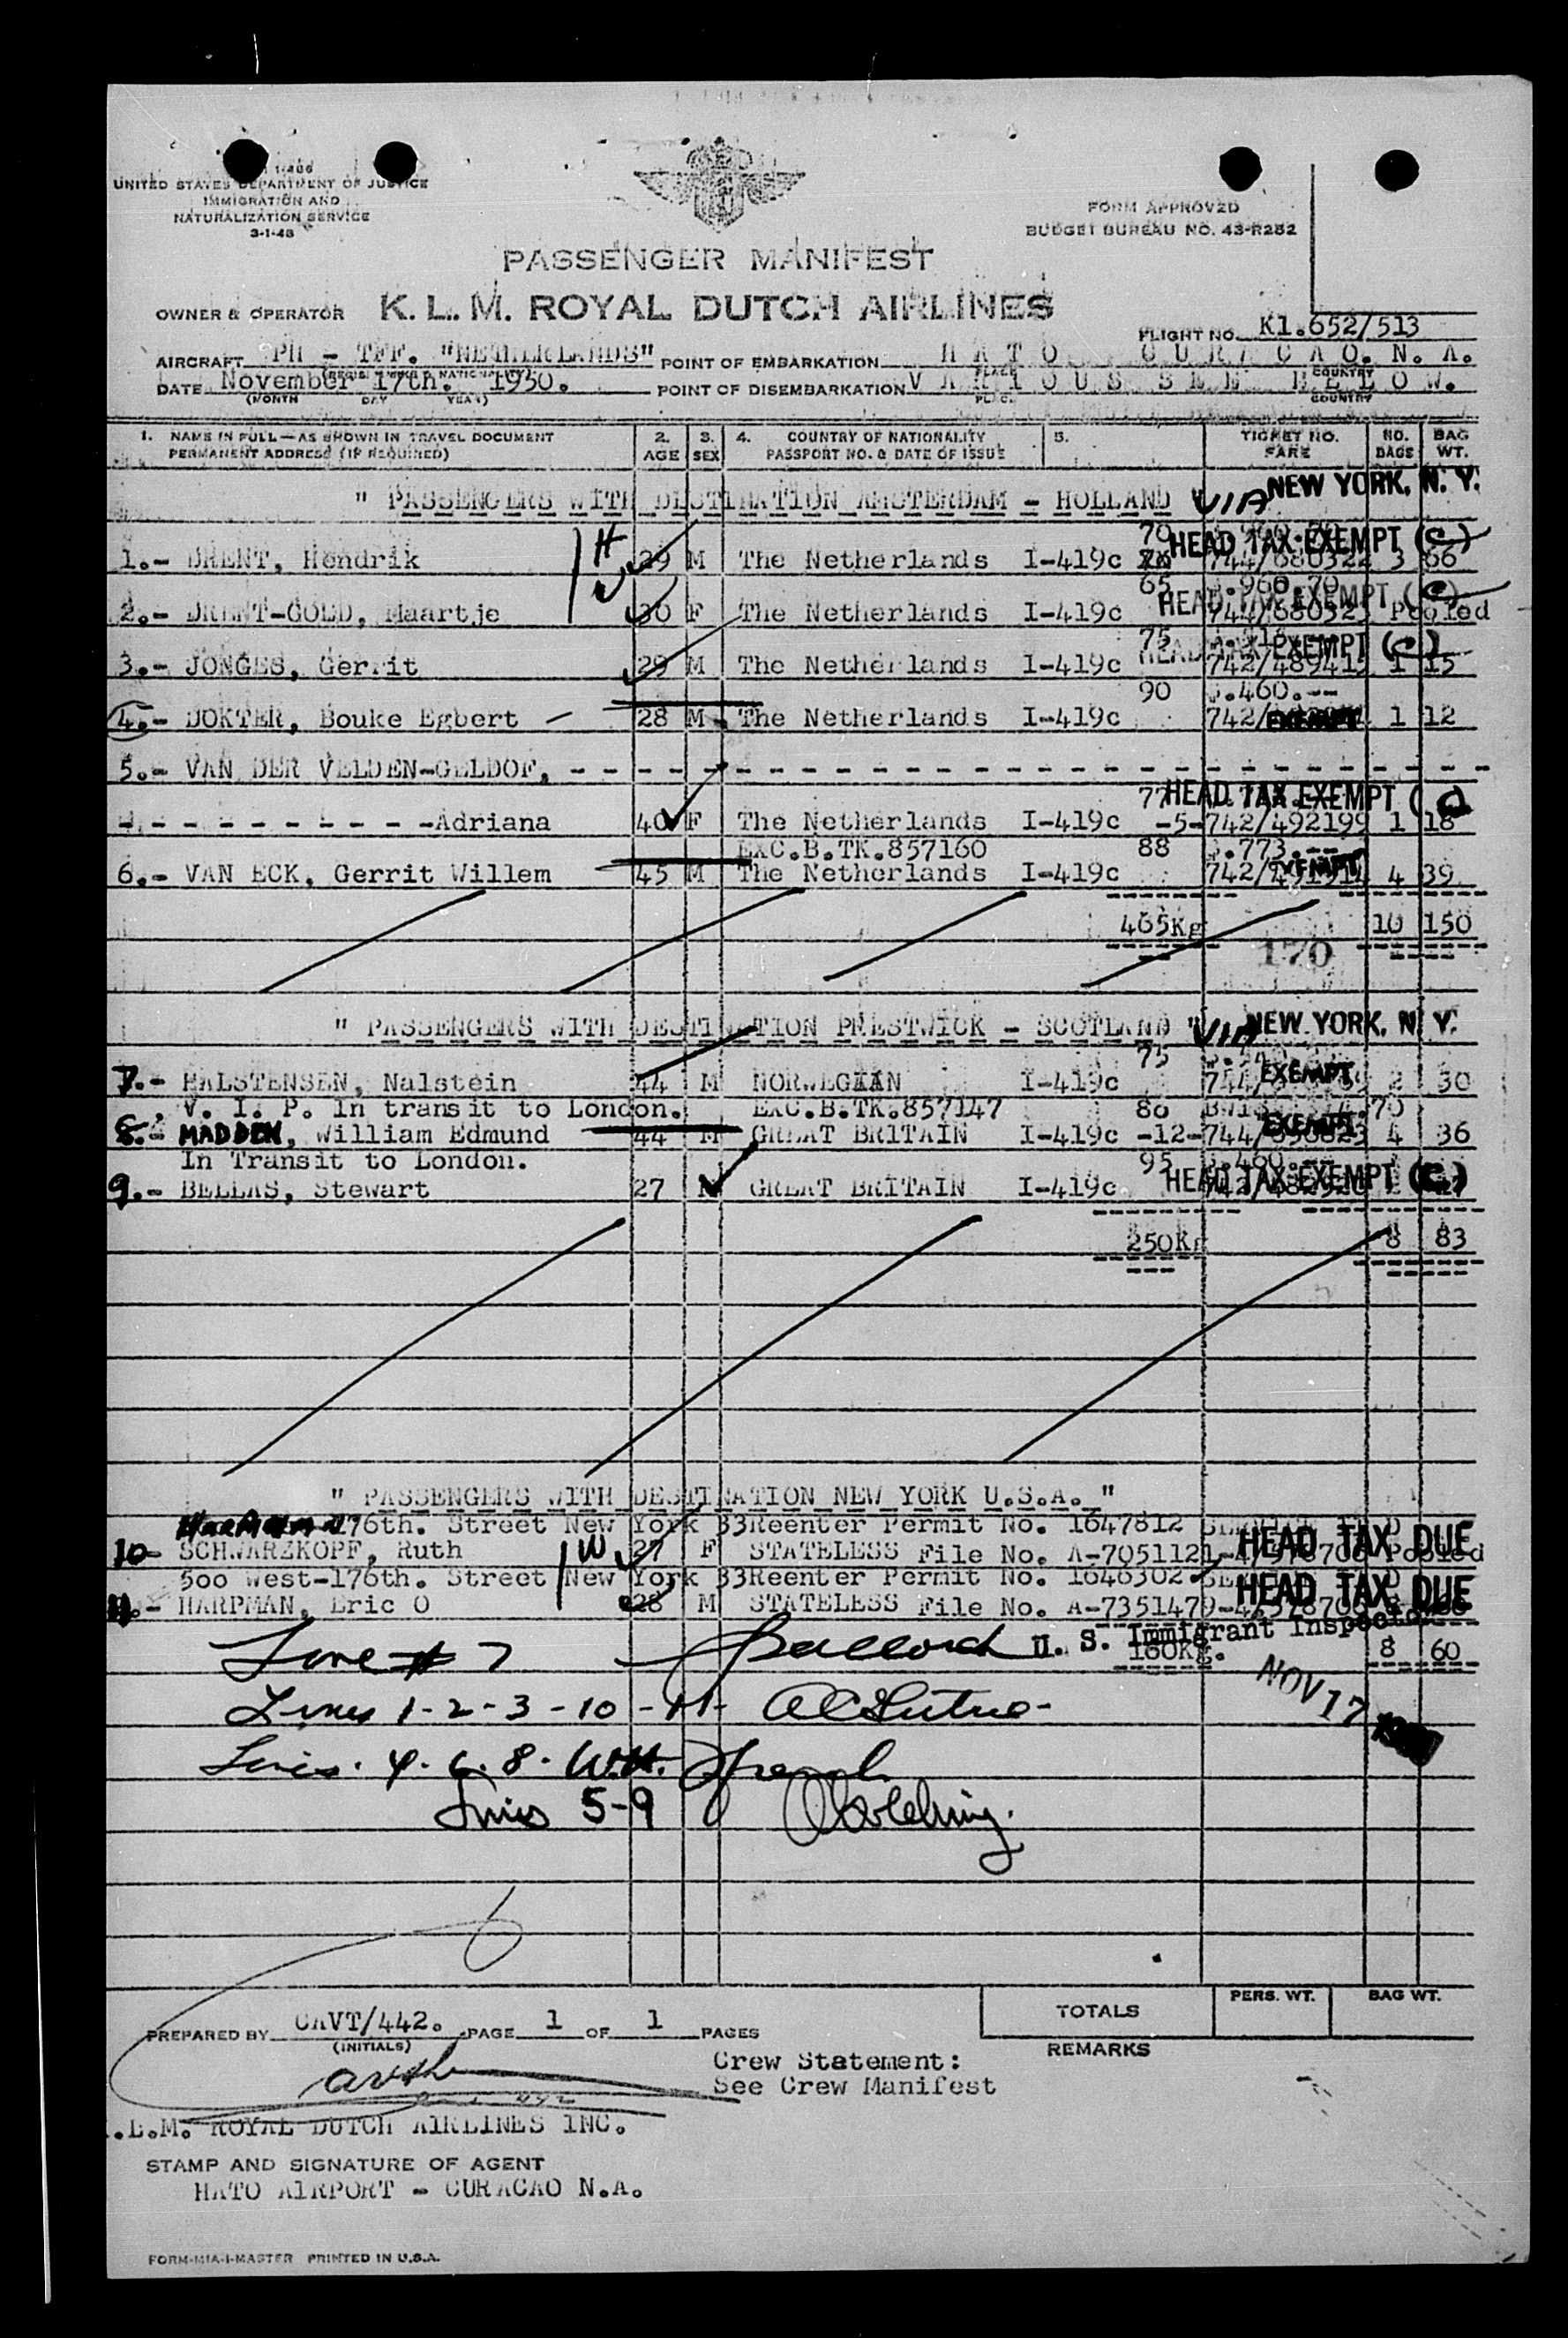 1-466
UNITED STATES DEPARTMENT OF JUSTICE
IMMIGRATION AND
NATURALIZATION SERVICE
3-1-48
FORM APPROVED
BUDGET BUREAU NO. 43-R282
PASSENGER MANIFEST
OWNER & OPERATOR K. L. M. ROYAL DUTCH AIRLINES
FLIGHT NO. Kl.652/513
AIRCRAFT PH - TFF. "NETHERLANDS" POINT OF EMBARKATION HATO CURACAO. N. A.
DATE November 17th. 1950. POINT OF DISEMBARKATION VARIOUS SEE BELOW.
(MONTH DAY YEAR) PLACE COUNTRY
1. NAME IN FULL—AS SHOWN IN TRAVEL DOCUMENT 2. 3. 4. COUNTRY OF NATIONALITY 5. TICKET NO. NO. BAG
PERMANENT ADDRESS (IF REQUIRED) AGE SEX PASSPORT NO. & DATE OF ISSUE FARE BAGS WT.
" PASSENGERS WITH DESTINATION AMSTERDAM - HOLLAND VIA NEW YORK, N. Y.
70 HEAD TAX EXEMPT (C)
1.- DRENT, Hendrik H 29 M The Netherlands I-419c 744/680322 3 66
65 .960.70 HEAD TAX EXEMPT (C)
2.- DRENT-GOLD, Maartje W 30 F The Netherlands I-419c 744/68032 Pooled
75 HEAD TAX EXEMPT (C)
3.- JONGES, Gerrit 29 M The Netherlands I-419c 742/489415 1 15
90 .460.--
4.- DOKTER, Bouke Egbert - 28 M The Netherlands I-419c 742/ EXEMPT 1 12
5.- VAN DER VELDEN-GELDOF, - - - - - - - - - - - - - - - - - - - - - - - - - -
77 HEAD TAX EXEMPT (C)
- - - - - - - - - - -Adriana 40 F The Netherlands I-419c -5-742/492199 1 18
EXC.B.TK.857160 88 .773.--
6.- VAN ECK, Gerrit Willem 45 M The Netherlands I-419c 742/ EXEMPT 4 39
465Kg 10 150
170
" PASSENGERS WITH DESTINATION PRESTWICK - SCOTLAND " VIA NEW YORK, N. Y.
75
7.- HALSTENSEN, Nalstein 44 M NORWEGIAN I-419c 744/ EXEMPT 2 30
V. I. P. In transit to London. EXC.B.TK.857147 80
8.- MADDEN, William Edmund 44 M GREAT BRITAIN I-419c -12-744/ EXEMPT 4 36
In Transit to London. 95 .460.--
9.- BELLAS, Stewart 27 M GREAT BRITAIN I-419c HEAD TAX EXEMPT (C)
250Kg 8 83
" PASSENGERS WITH DESTINATION NEW YORK U.S.A. "
176th. Street New York 33 Reenter Permit No. 1647812
10- SCHWARZKOPF, Ruth W 27 F STATELESS File No. A-7051121 HEAD TAX DUE Pooled
500 West-176th. Street New York 33 Reenter Permit No. 1646302
11.- HARPMAN, Eric O 28 M STATELESS File No. A-7351479 HEAD TAX DUE
U. S. Immigrant Inspector
Line # 7 160Kg. 8 60
NOV 17
Lines 1-2-3-10-11-
Lines. 4. 6. 8. W.H. French
Lines 5-9
PREPARED BY CAVT/442. PAGE 1 OF 1 PAGES
(INITIALS)
TOTALS PERS. WT. BAG WT.
REMARKS
Crew Statement:
See Crew Manifest
.L.M. ROYAL DUTCH AIRLINES INC.
STAMP AND SIGNATURE OF AGENT
HATO AIRPORT - CURACAO N.A.
FORM-MIA-1-MASTER PRINTED IN U.S.A.